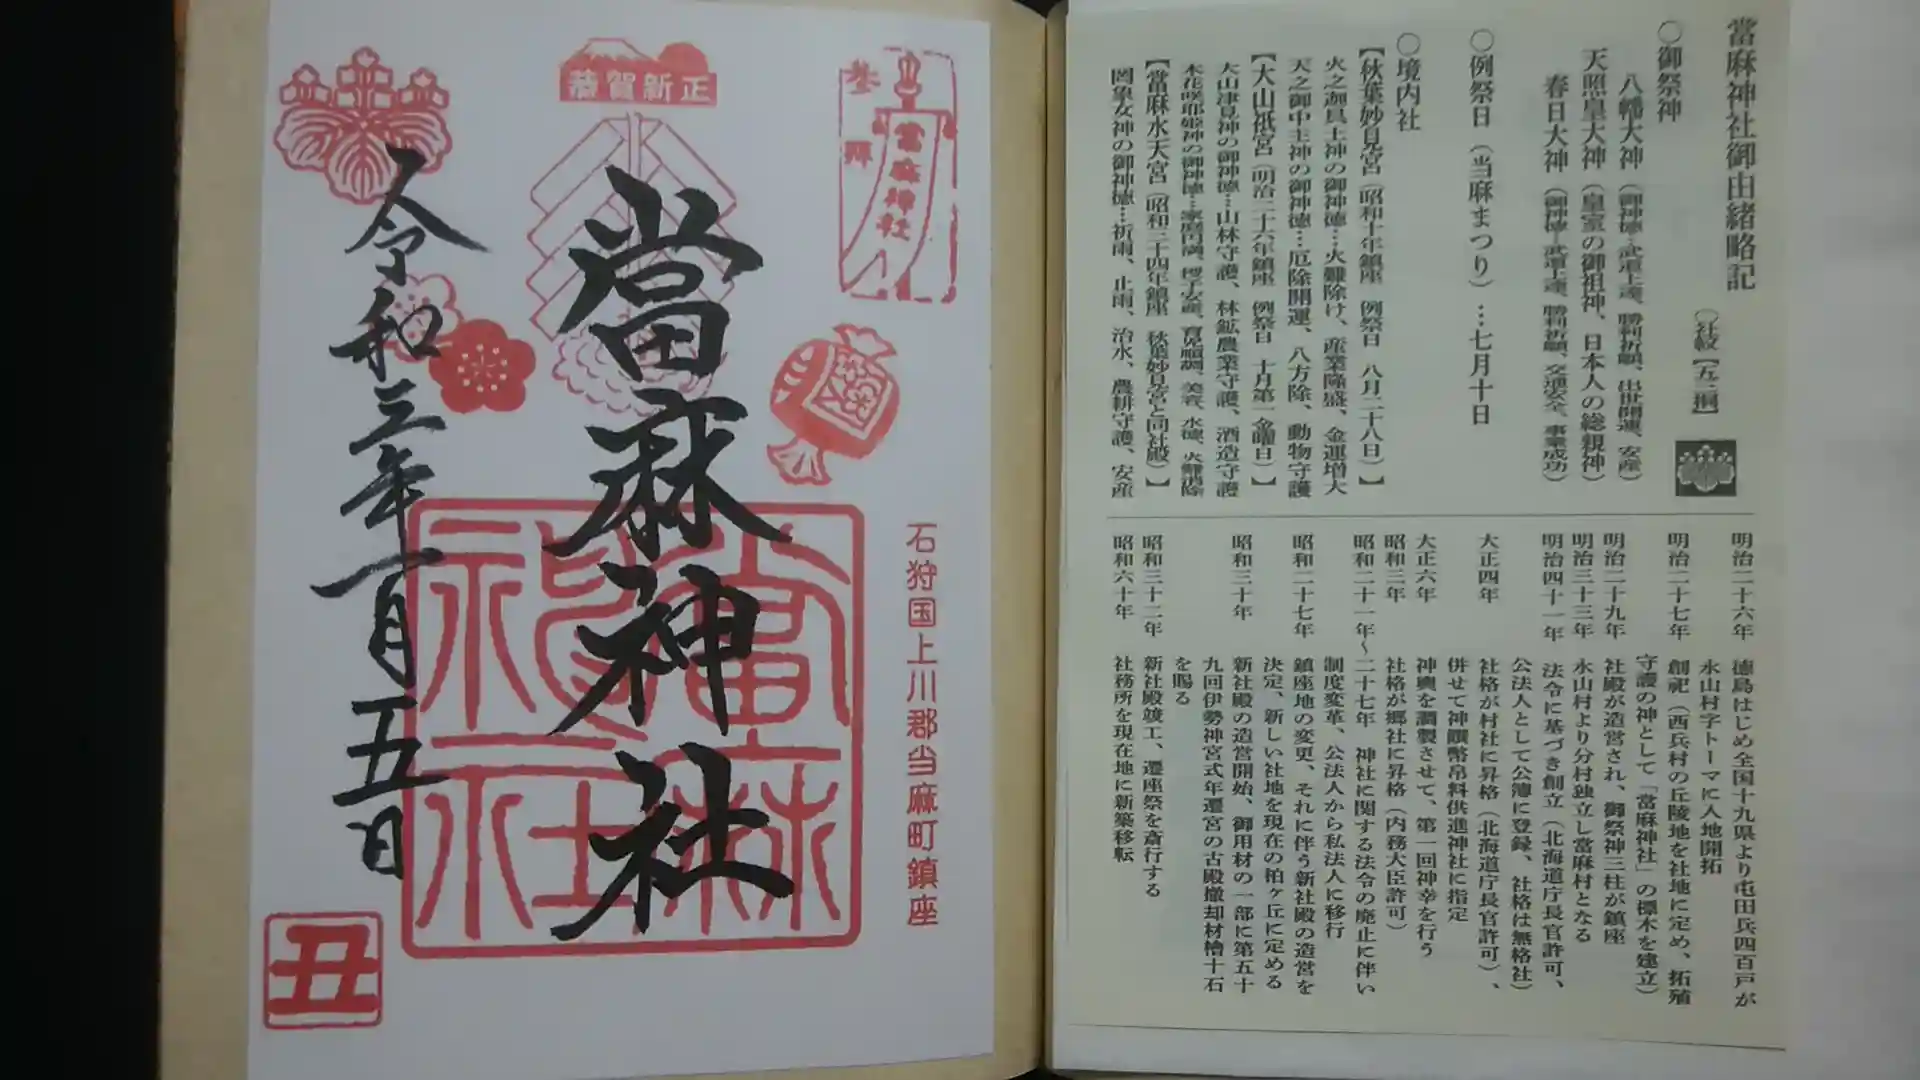 當麻神社御由緒略記
○社紋【五三桐】
○御祭神
八幡大神（御神徳…武運上運、勝利祈願、出世開運、安産）
天照皇大神（皇室の御祖神、日本人の総親神）
春日大神（御神徳…武運上運、勝利祈願、交通安全、事業成功）
○例祭日（当麻まつり）…七月十日
○境内社
【秋葉妙見宮（昭和十年鎮座　例祭日　八月二十八日）】
火之迦具土神の御神徳…火難除け、産業隆盛、金運増大
天之御中主神の御神徳…厄除開運、八方除、動物守護
【大山祇宮（明治二十六年鎮座　例祭日　十月第一金曜日）】
大山津見神の御神徳…山林守護、林鉱農業守護、酒造守護
木花咲耶姫神の御神徳…家庭円満、授子安産、育児順調、美容、水徳、火難消除
【當麻水天宮（昭和三十四年鎮座　秋葉妙見宮と同社殿）】
罔象女神の御神徳…祈雨、止雨、治水、農耕守護、安産
明治二十六年　徳島はじめ全国十九県より屯田兵四百戸が
永山村字トーマに入地開拓
明治二十七年　創祀（西兵村の丘陵地を社地に定め、拓殖
守護の神として「當麻神社」の標木を建立）
明治二十九年　社殿が造営され、御祭神三柱が鎮座
明治三十三年　永山村より分村独立し當麻村となる
明治四十一年　法令に基づき創立（北海道庁長官許可、
公法人として公簿に登録、社格は無格社）
大正四年　社格が村社に昇格（北海道庁長官許可）、
併せて神饌幣帛料供進神社に指定
大正六年　神輿を調製させて、第一回神幸を行う
昭和三年　社格が郷社に昇格（内務大臣許可）
昭和二十一年～二十七年　神社に関する法令の廃止に伴い
制度変革、公法人から私法人に移行
昭和二十七年　鎮座地の変更、それに伴う新社殿の造営を
決定、新しい社地を現在の柏ヶ丘に定める
昭和三十年　新社殿の造営開始、御用材の一部に第五十
九回伊勢神宮式年遷宮の古殿撤却材檜十石
を賜る
昭和三十二年　新社殿竣工、遷座祭を斎行する
昭和六十年　社務所を現在地に新築移転
參拜
當麻神社
恭賀新正
石狩国上川郡当麻町鎮座
當麻神社
當麻神社
令和三年一月五日
丑